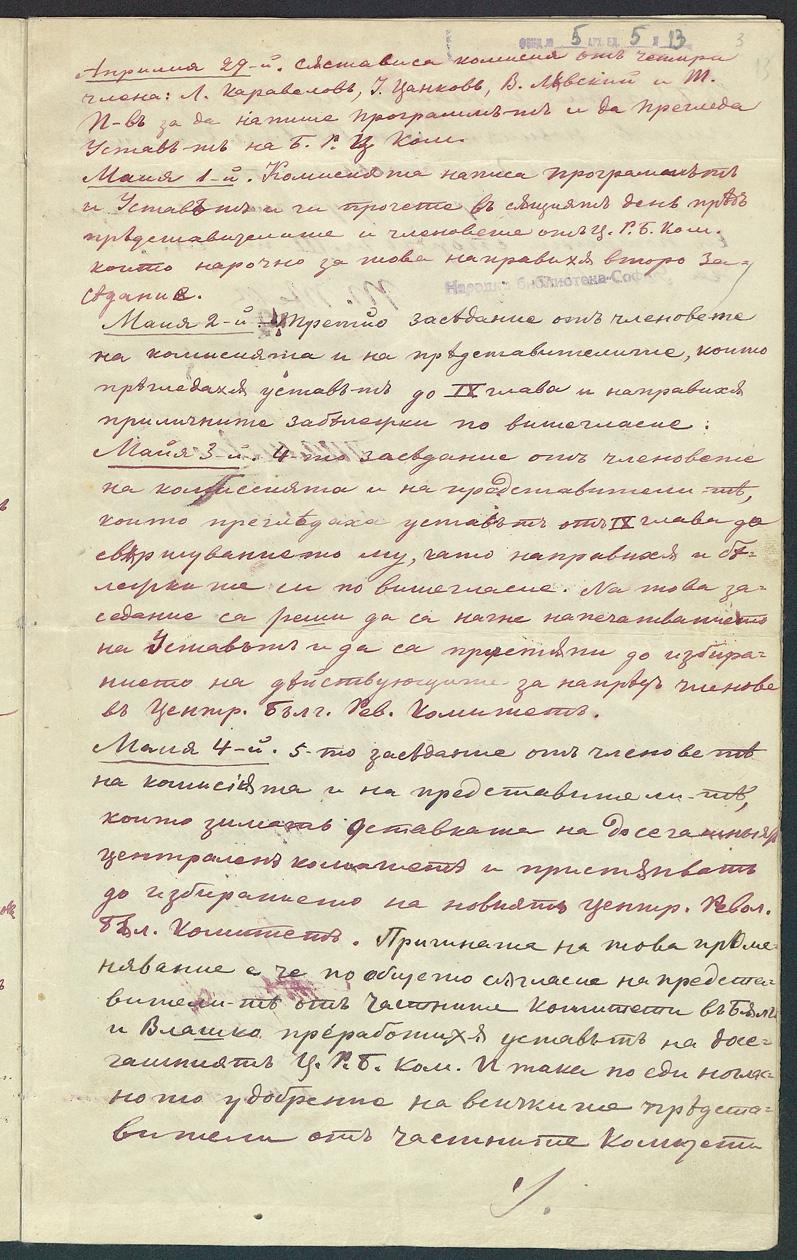 ФОНД № 5 АРХ. ЕД. 5 Л 13
3
13
Априлия 29-й. състависа комисия отъ четири
члена: Л. Каравеловъ, І. Цанковъ, В. Лѣвский и Т.
П-въ за да напише програмж-тѫ и да прегледа
Уставъ-тъ на Б. Р. Ц. Ком.
Майя 1-й. Комисията написа программътъ
и Уставътъ и ги прочете въ сѫщиятъ день прѣдъ
прѣдставителите и членовете отъ Ц. Р. Б. Ком.
които нарочно за това направихѫ второ за-
сѣдание.
Народна библиотека-София
Майя 2-й. Третйо засѣдание отъ членовете
на комисията и на прѣдставителите, които
прѣгледахѫ уставътъ до IX глава и направихѫ
приличните забѣлѣжки по вишегласие:
Майя 3-й. 4-то засѣдание отъ членовете
на комиссията и на представители-тѣ,
които прегледаха уставътъ отъ IX глава до
свѣршуванието му, като направихѫ и бѣ-
лежки те си по вишегласие. На това за-
седание са реши да са начне напечатванието
на Уставътъ и да са пристѫпи до избира-
нието на дѣйствующите за напрѣдъ членове
въ Центр. Бълг. Рев. Комитетъ.
Майя 4-й. 5-то засѣдание отъ членоветѣ
на комисіята и на представители-тѣ,
които зиматъ оставката на досегашныятъ
централенъ комитетъ и пристѫпватъ
до избиранието на новиятъ Центр. Револ.
Бъл. Комитетъ. Причината на това прѣме-
нявание е че по общето съгласие на предста-
вители-тѣ отъ частните Комитети въ Бълг.
и Влашко преработихѫ уставътъ на досе-
гашниятъ Ц. Р. Б. Ком. И така по единоглас-
ното удобрение на всичките прѣдста-
вители отъ частните Комитети